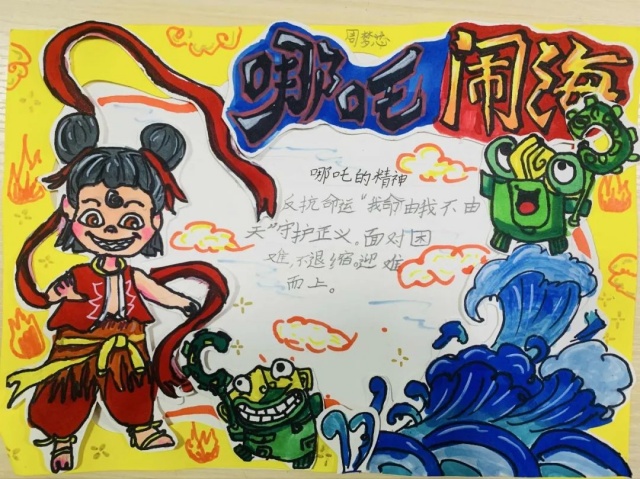 周梦芯
哪吒闹海
哪吒的精神
反抗命运"我命由我不由
天"守护正义。面对困
难,不退缩。迎难
而上。